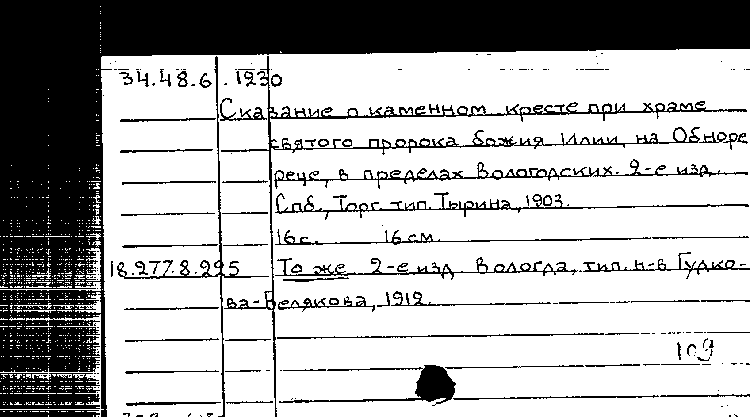 34.48.6.1230
Сказание о каменном кресте при храме
святого пророка божия Илии, на Обноре
реце, в пределах Вологодских. 2-е изд.
Спб., Торг. тип. Тырина, 1903.
16 с. 16 см.
18.277.8.225 То же 2-е изд. Вологда, тип. н-в Гудко-
ва-Белякова, 1912.
109